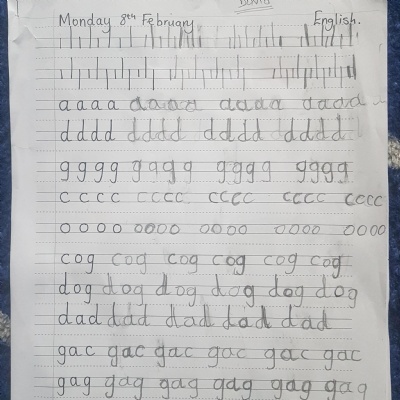 Monday 8th February English.
a a a a a a a a a a a a a a a a
d d d d d d d d d d d d d d d d
g g g g g g g g g g g g g g g g
c c c c c c c c c c c c c c c c c c c c
o o o o o o o o o o o o o o o o o o o o
cog cog cog cog cog cog
dog dog dog dog dog dog
dad dad dad dad dad
gac gac gac gac gac gac
gag gag gag gag gag gag